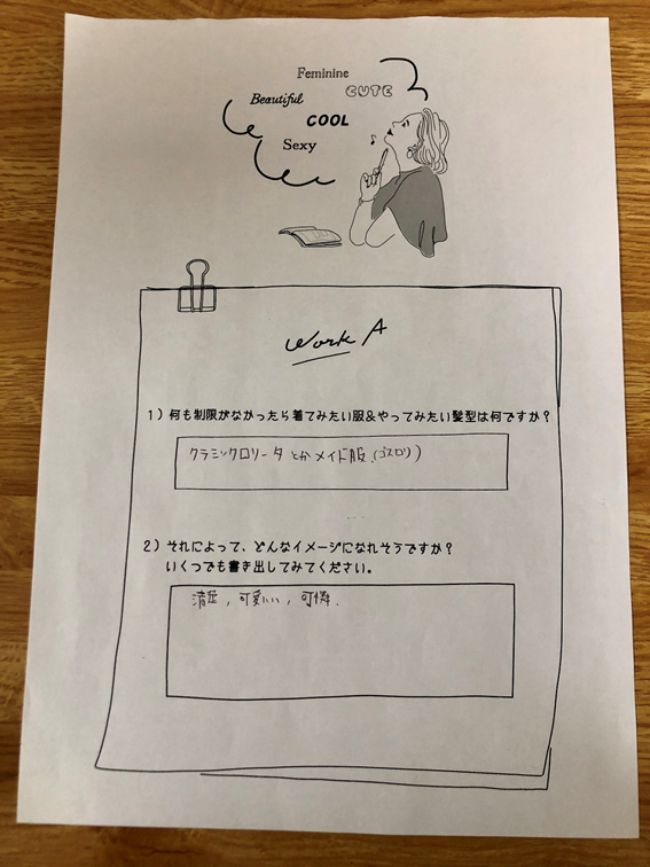 Feminine
CUTE
Beautiful
COOL
Sexy
Work A
1) 何も制限がなかったら着てみたい服&やってみたい髪型は何ですか?
クラミックロリータとかメイド服、(ゴスロリ)
2) それによって、どんなイメージになれそうですか?
いくつでも書き出してみてください。
清楚, 可愛いい, 可憐.